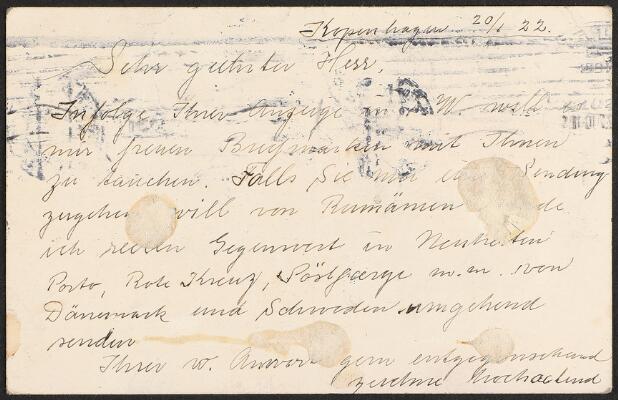 Kopenhagen 20/1 22.
Sehr geehrter Herr,
Infolge Ihrer Anzeige W. will
mir freuen Briefmarken mit Ihnen
zu tauchen. Falls Sie mir Sendung
zugehen will von Rumänien
ich reellen Gegenwert in Neuheiten
Porto, Rote Kreuz, m.m. von
Dänemark und Schweden umgehend
senden
Ihrer w. Antwort gern entgegensehend
zeichne Hochachtend